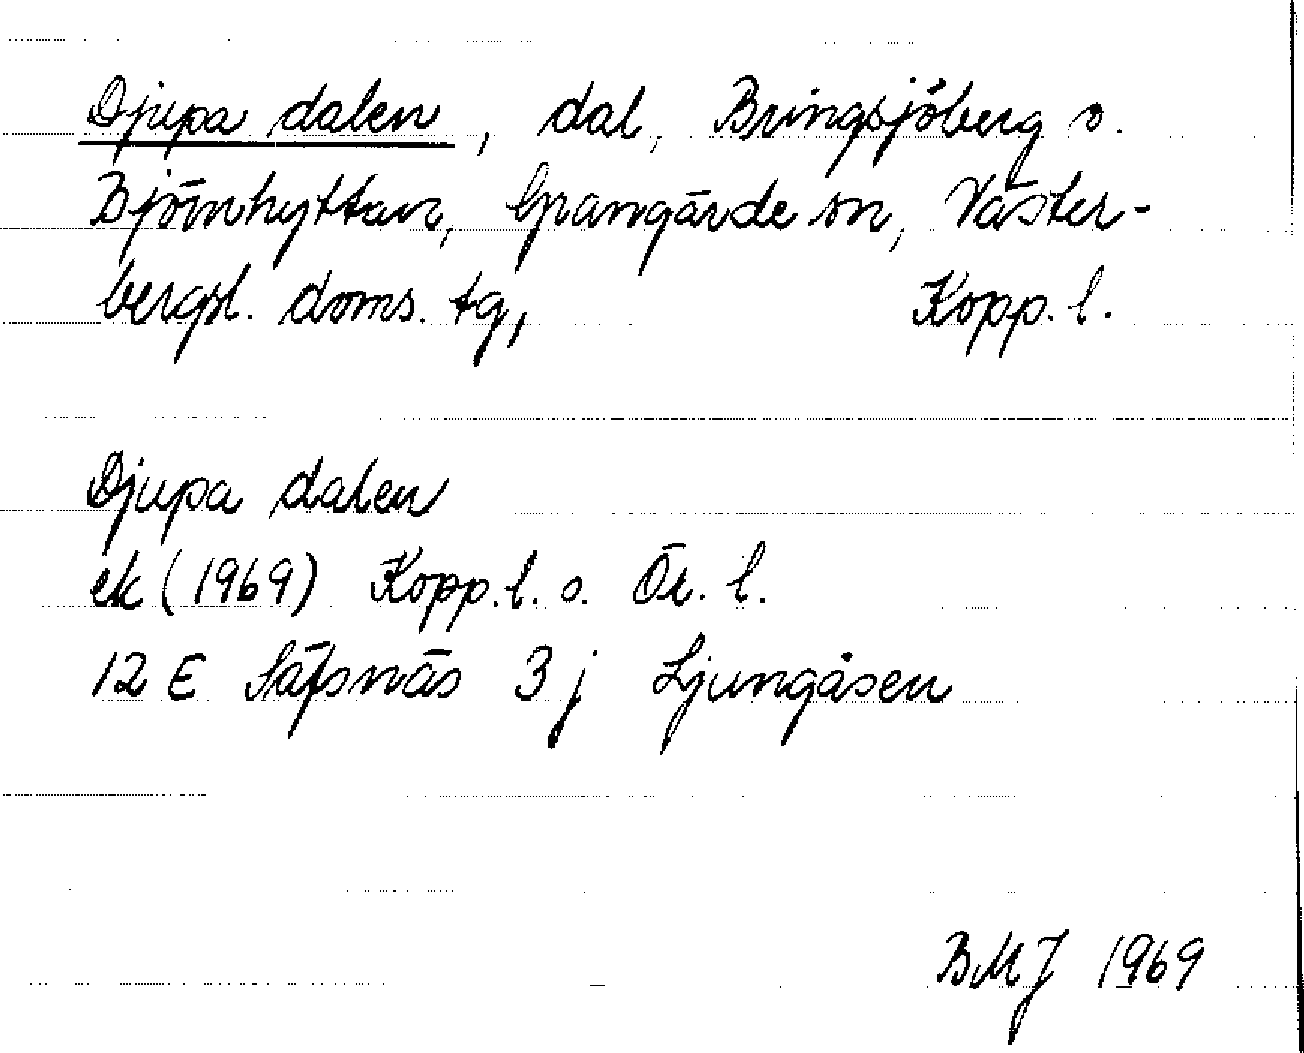 Djupa dalen, dal, Bringsjöberg o.
Björnhyttan, Grangärde sn, Väster-
bergsl. doms. tg, Kopp. l.
Djupa dalen
ek (1969) Kopp. l. o. Ör. l.
12 E Säfsnäs 3 j Ljungåsen
BMJ 1969